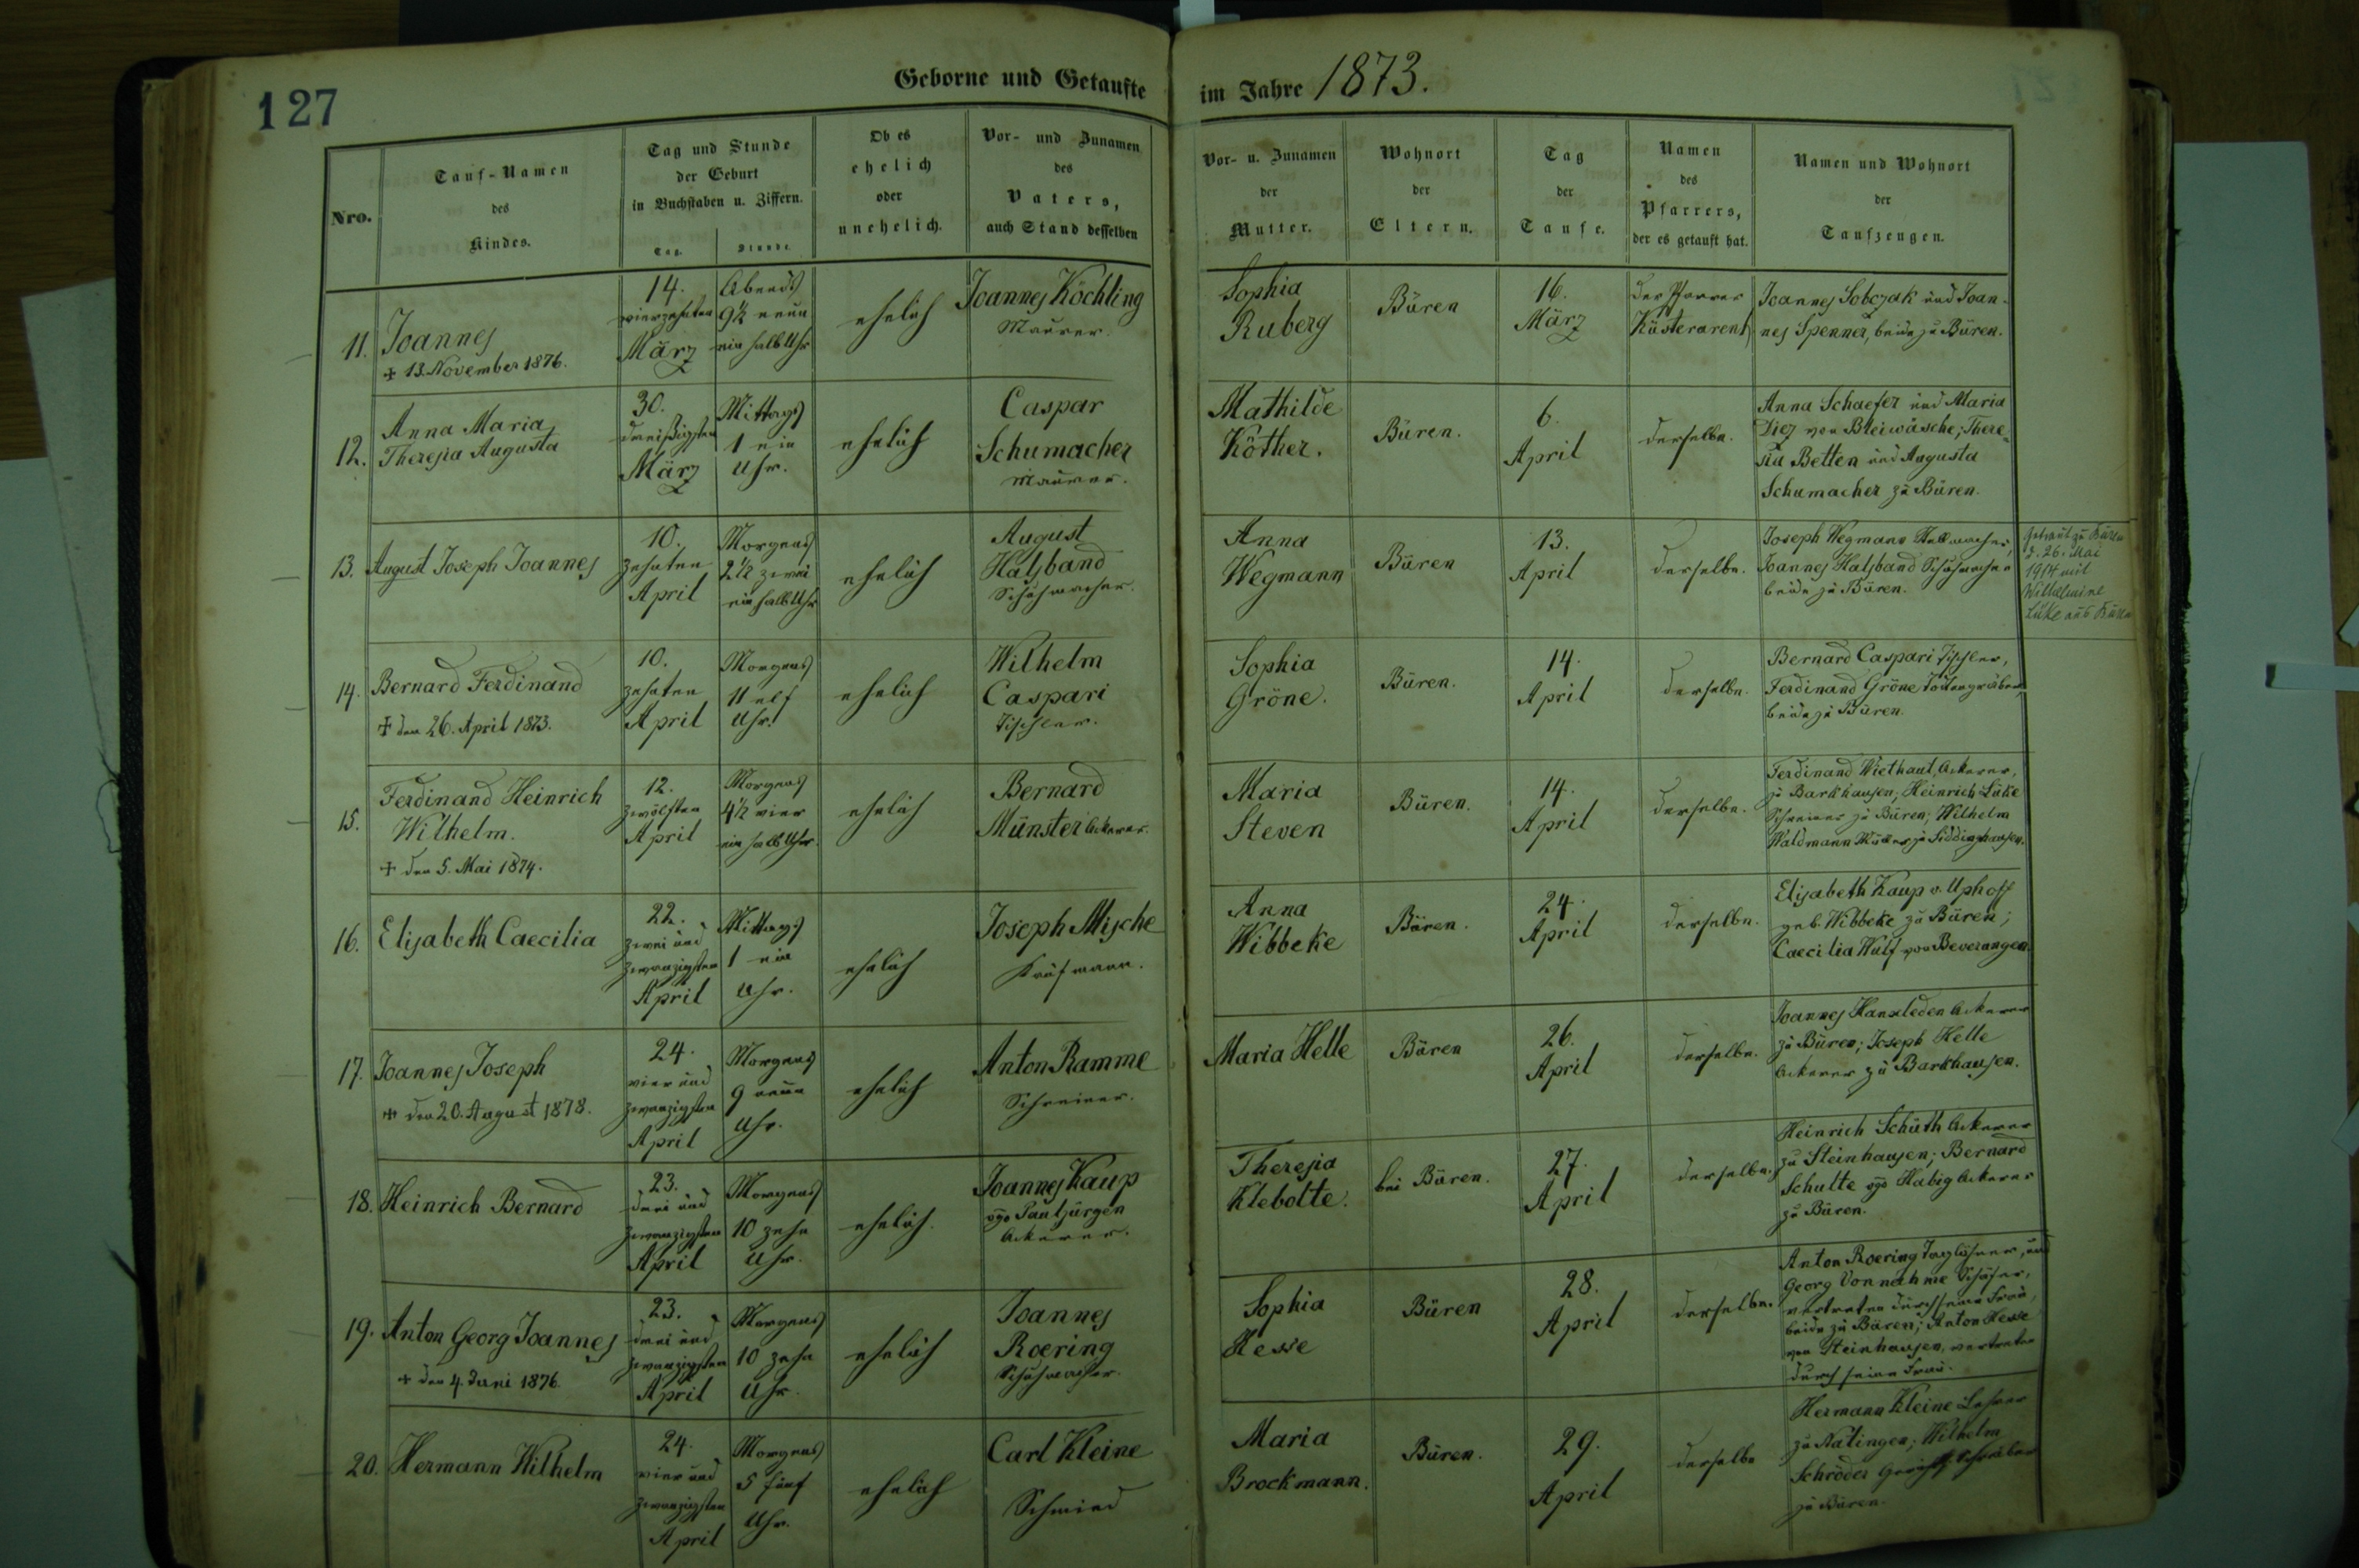 127
Geborne und Getaufte im Jahre 1873.
Nro.
Tauf-Namen
des
Kindes.
Tag und Stunde
der Geburt
in Buchstaben u. Ziffern.
Tag. Stunde.
Ob es
ehelich
oder
unehelich.
Vor- und Zunamen
des
Vaters,
auch Stand desselben
Vor- u. Zunamen
der
Mutter.
Wohnort
der
Eltern.
Tag
der
Taufe.
Namen
des
Pfarrers,
der es getauft hat.
Namen und Wohnort
der
Taufzeugen.
11.
Joannes
+ 13. November 1876.
14.
vierzehnten
März
Abends
9½ neun
ein halb Uhr
ehelich
Joannes Köchling
Maurer.
Sophia
Ruberg
Büren
16.
März
der Pfarrer
Küsterarent
Joannes Sobczak und Joan-
nes Spenner, beide zu Büren.
12.
Anna Maria
Theresia Augusta
30.
dreißigsten
März
Mittags
1 ein
Uhr.
ehelich
Caspar
Schumacher
Maurer.
Mathilde
Köther.
Büren.
6.
April
derselbe.
Anna Schaefer und Maria
Diez von Bleiwäsche; There-
sia Betten und Augusta
Schumacher zu Büren.
13.
August Joseph Joannes
10.
zehnten
April
Morgens
2½ zwei
ein halb Uhr
ehelich
August
Halsband
Schuhmacher.
Anna
Wegmann
Büren
13.
April
derselbe.
Joseph Wegmann
Joannes Halsband Schuhmacher
beide zu Büren.
Getraut zu Büren
d. 26. Mai
1914 mit
Wilhelmine
Lüke aus Büren
14.
Bernard Ferdinand
+ den 26. April 1873.
10.
zehnten
April
Morgens
11 elf
Uhr.
ehelich
Wilhelm
Caspari
Tischler.
Sophia
Gröne.
Büren.
14.
April
derselbe.
Bernard Caspari Tischler,
Ferdinand Gröne Todtengräber,
beide zu Büren.
15.
Ferdinand Heinrich
Wilhelm.
+ den 5. Mai 1874.
12.
zwölften
April
Morgens
4½ vier
ein halb Uhr.
ehelich
Bernard
Münster Ackerer.
Maria
Steven
Büren.
14.
April
derselbe.
Ferdinand Wiethaut, Ackerer,
zu Barkhausen; Heinrich Lüke
Schreiner zu Büren; Wilhelm
Waldmann Müller zu Siddinghausen.
16.
Elisabeth Caecilia
22.
zwei und
zwanzigsten
April
Mittags
1 ein
Uhr.
ehelich
Joseph Mische
Kaufmann.
Anna
Wibbeke
Büren.
24.
April
derselbe.
Elisabeth Kaup v. Uphoff
geb. Wibbeke zu Büren;
Caecilia Wulf von Beverungen.
17.
Joannes Joseph
+ den 20. August 1878.
24.
vier und
zwanzigsten
April
Morgens
9 neun
Uhr.
ehelich
Anton Ramme
Schreiner.
Maria Helle
Büren
26.
April
derselbe.
Joannes Hanxleden Ackerer
zu Büren; Joseph Helle
Ackerer zu Barkhausen.
18.
Heinrich Bernard
23.
drei und
zwanzigsten
April
Morgens
10 zehn
Uhr.
ehelich.
Joannes Kaup
vgo Pautjürgen
Ackerer.
Theresia
Klebolte.
bei Büren.
27.
April
derselbe.
Heinrich Schüth Ackerer
zu Steinhausen; Bernard
Schulte vgo Habig Ackerer
zu Büren.
19.
Anton Georg Joannes
+ den 4. Juni 1876.
23.
drei und
zwanzigsten
April
Morgens
10 zehn
Uhr.
ehelich
Joannes
Roering
Schuhmacher.
Sophia
Hesse
Büren
28.
April
derselbe.
Anton Roering Taglöhner, und
Georg Vonnahme Schäfer,
vertreten durch seine Frau,
beide zu Büren; Anton Hesse
von Steinhausen, vertreten
durch seine Frau.
20.
Hermann Wilhelm
24.
vier und
zwanzigsten
April
Morgens
5 fünf
Uhr.
ehelich
Carl Kleine
Schmied
Maria
Brockmann.
Büren.
29.
April
derselbe
Hermann Kleine Lehrer
zu Natingen; Wilhelm
Schröder Gerichtsschreiber
zu Büren.